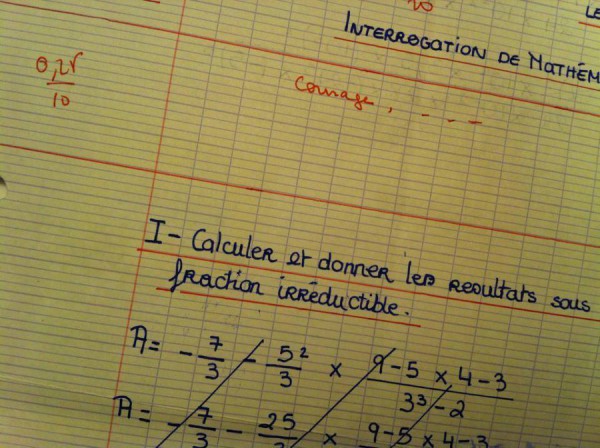 20
LE
INTERROGATION DE MATHÉM
0,25
10
Courage, - - -
I- Calculer et donner les resultats sous
fraction irréductible.
A = - 7/3 - 5²/3 × 9-5 × 4-3 / 3³-2
A = - 7/3 - 25/3 × 9-5 × 4-3